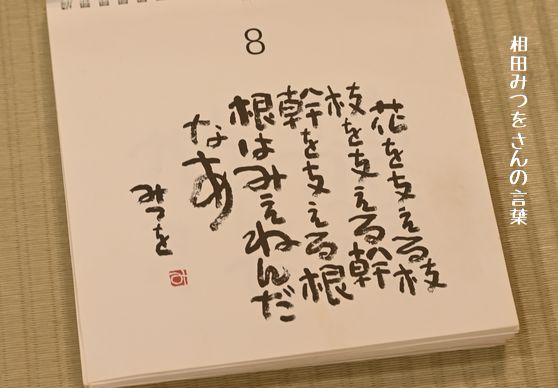 相田みつをさんの言葉
8
花を支える枝
枝を支える幹
幹を支える根
根はみえねんだ
なあ
みつを